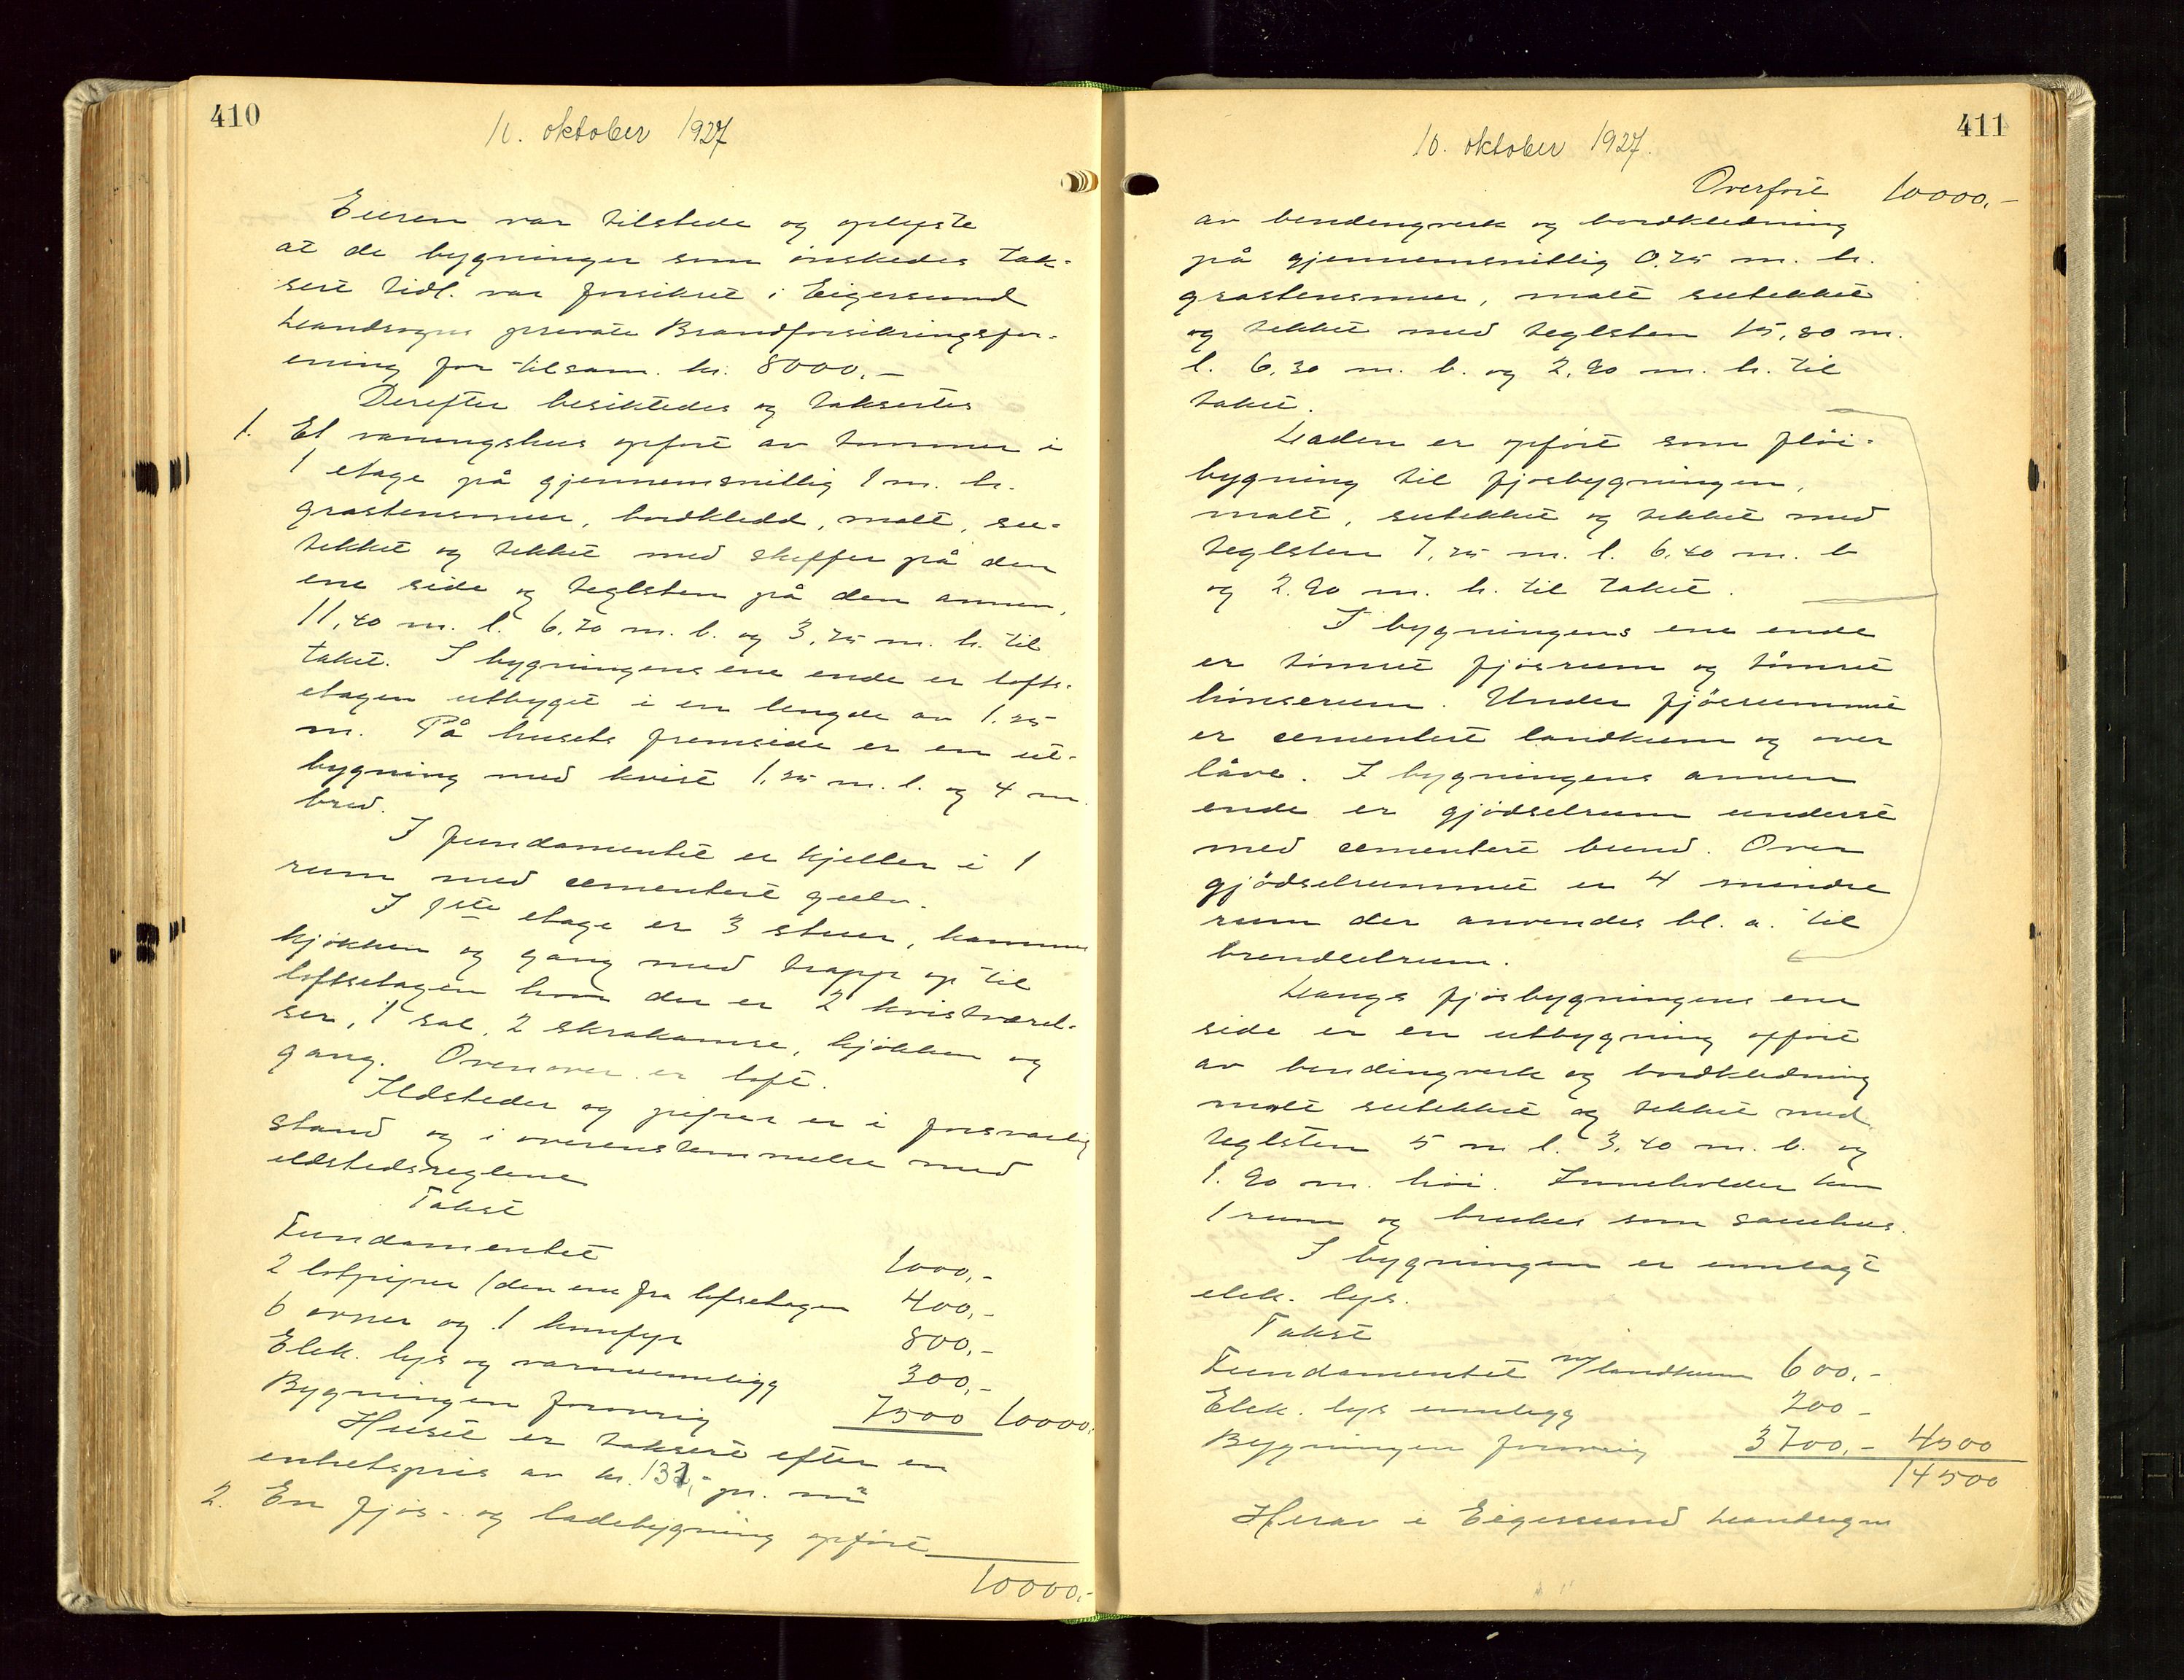 410
10. oktober 1927
Eieren var tilstede og oplyste
at de bygninger som ønskedes tak-
sert tidl. var forsikret i Eigersund
Landsogns private Brandforsikringsfor-
ening for tilsam. kr. 8000,-
Derefter besiktedes og taksertes
1. Et vaaningshus opført av tømmer i
1 etage på gjennemsnittlig 1 m. h.
gråstensmur, bordkledd, malt, su-
tekket og tekket med skiffer på den
ene side og teglsten på den annen,
11,40 m. l. 6,70 m. b. og 3,75 m. h. til
taket. I bygningens ene ende er lofts-
etagen utbygget i en lengde av 1.25
m. På husets fremside er en ut-
bygning med kvist 1,25 m. l. og 4 m.
bred.
I fundamentet er kjeller i 1
rum med cementert gulv.
I 1ste etage er 3 stuer, kammer
kjøkken og gang med trapp op til
loftsetagen hvor der er 2 kvistværel-
ser, 1 sal, 2 skråkamre, kjøkken og
gang. Ovenover er loft.
Ildsteder og piper er i forsvarlig
stand og i overenstemmelse med
ildstedsreglene
Takst
Fundamentet 1000,-
2 løbpiper (den ene fra loftsetagen 400,-
6 ovner og 1 komfyr 800,-
Elek. lys og varmeinnlegg 300,-
Bygningen forøvrig 7500 10000,
Huset er taksert efter en
enhetspris av kr. 131,- pr. m²
2. En fjøs- og ladebygning opført
10000,-
411
10. oktober 1927.
Overført 10000,-
av bendingverk og bordkledning
på gjennemsnittlig 0.75 m. h.
gråstensmur, malt sutekket
og tekket med teglsten 15,80 m.
l. 6,30 m. b. og 2,90 m. h. til
taket.
Laden er opført som fløi-
bygning til fjøsbygningen,
malt, sutekket og tekket med
teglsten 7,25 m. l. 6,40 m. b
og 2.90 m. h. til taket.
I bygningens ene ende
er tømret fjøsrum og tømret
hønserum. Under fjøsrummet
er cementert landkum og over
låve. I bygningens annen
ende er gjødselrum underst
med cementert bund. Over
gjødselrummet er 4 mindre
rum der anvendes bl. a. til
brendselrum.
Langs fjøsbygningens ene
side er en utbygning opført
av bendingverk og bordkledning
malt sutekket og tekket med
teglsten 5 m l. 3,40 m. b. og
1.90 m. høi. Inneholder kun
1 rum og brukes som sauehus.
I bygningen er innlagt
elek. lys.
Takst
Fundamentet m/landkum 600,-
Elek. lys innlegg 200 -
Bygningen forøvrig 3700,- 4500
14500
Herav i Eigersund Landsogns